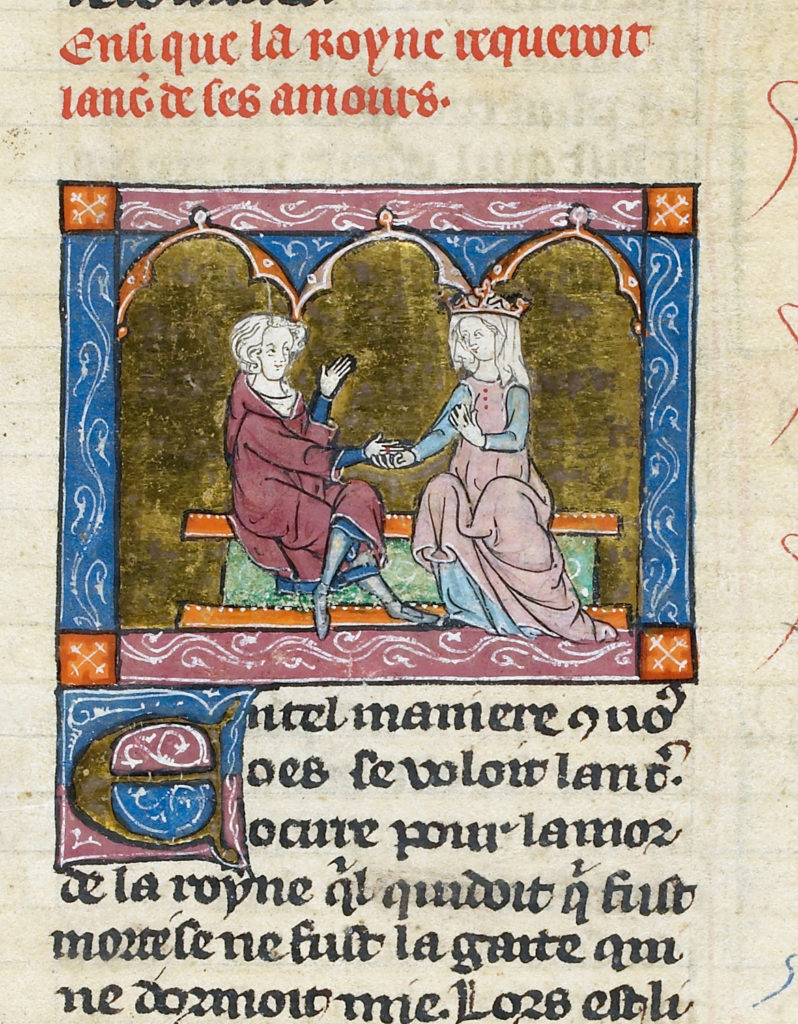 Ensi que la royne requeroit
lanc. de ses amours.
Entel maniere 9 uoꝰ
oes se voloit lanc.
ocirre pour lamor
de la royne ql̃ quidoit q̃ fust
morte se ne fust la gaite qui
ne dormoit mie. Lors est li